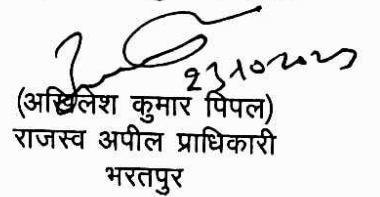 23102023
(अखिलेश कुमार पिपल)
राजस्व अपील प्राधिकारी
भरतपुर